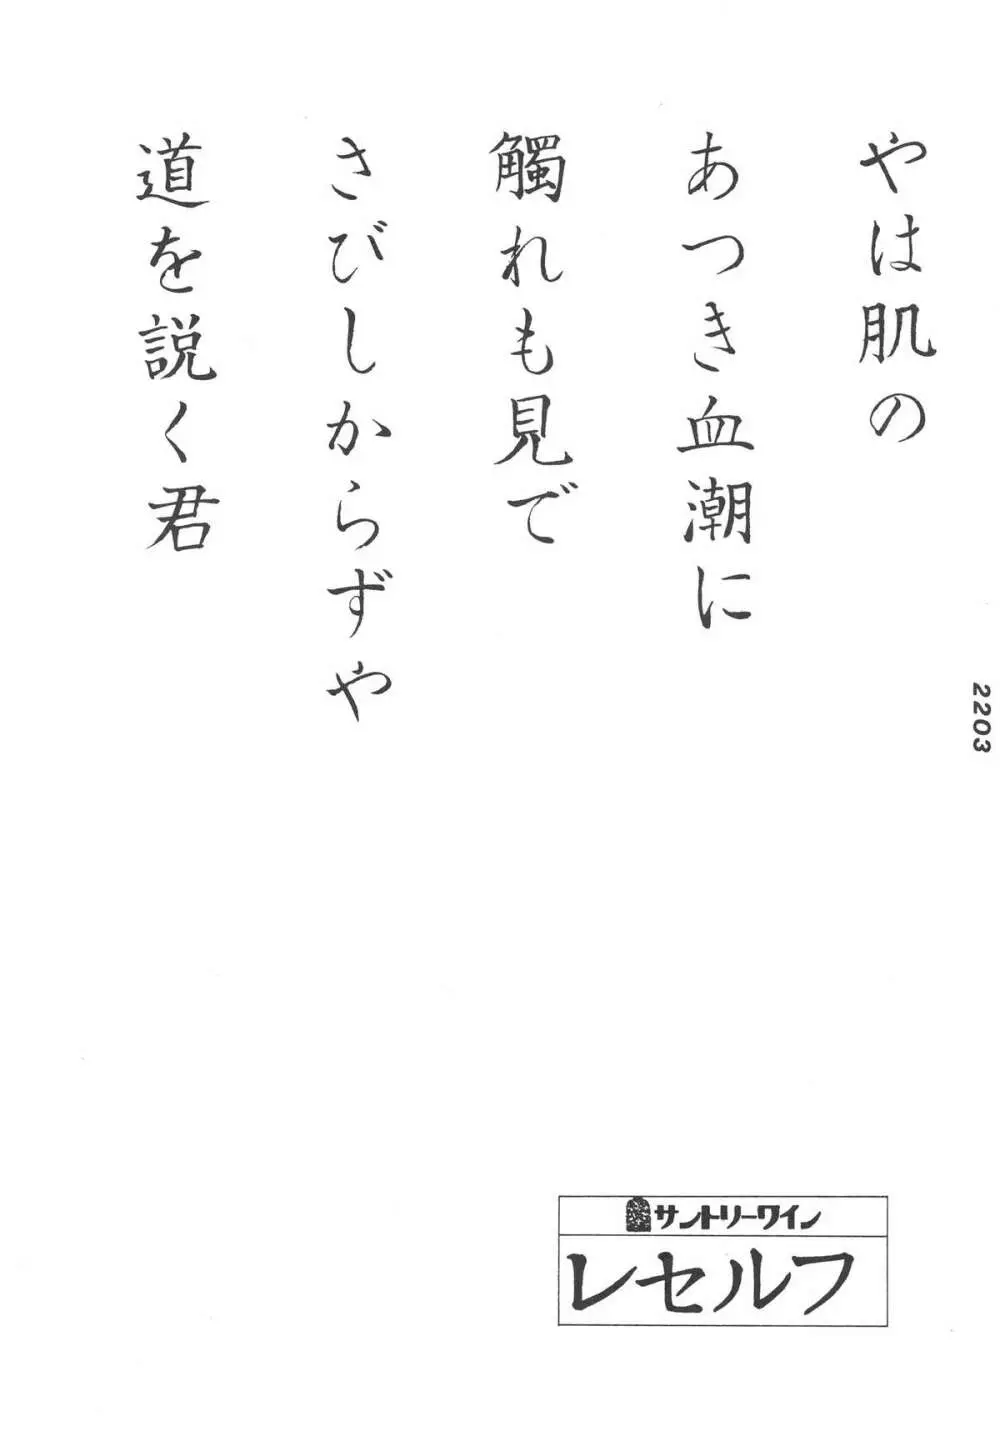 やは肌の
あつき血潮に
觸れも見で
さびしからずや
道を説く君
2203
サントリーワイン
レセルフ